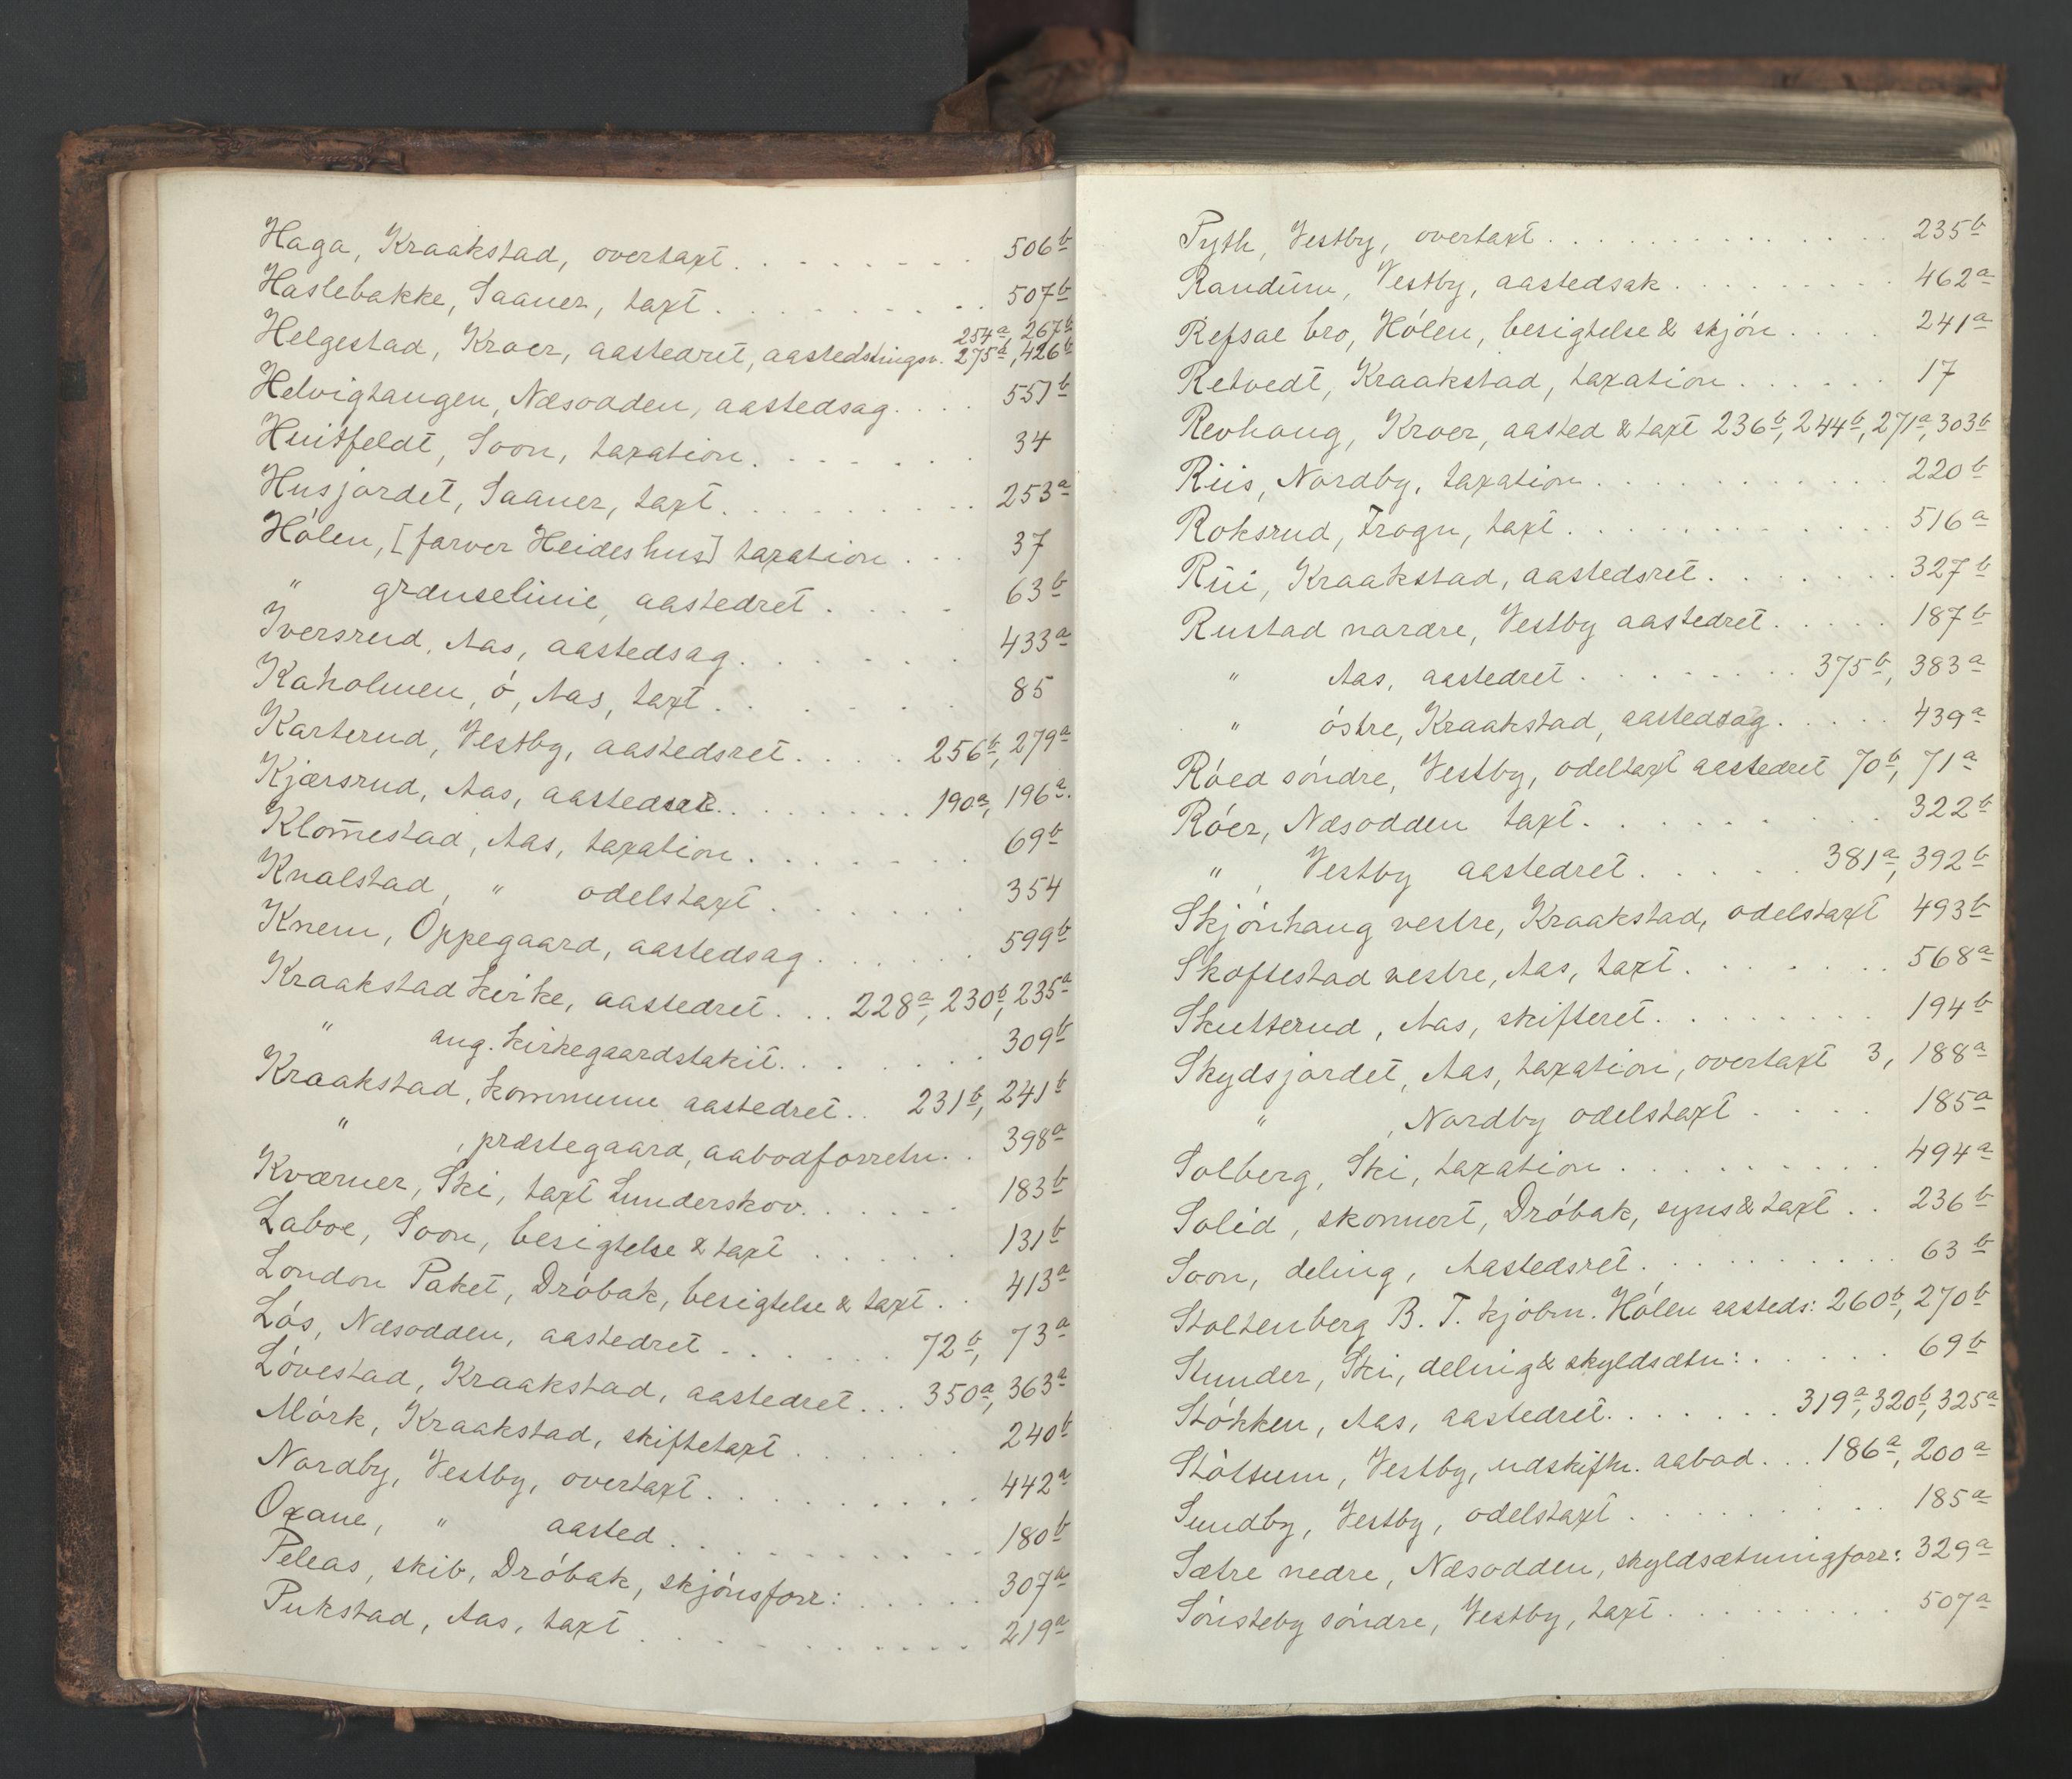 Haga, Kraakstad, overtaxt. . . . . . . . 506 b
Haslebakke, Saaner, taxt . . . . . . . . 507 b
254 a, 267 b
Helgestad, Kroer, aastedret, aastedstingsv. 275 a, 426 b
Helvigtangen, Næsodden, aastedsag. . . . 551 b
Huitfeldt, Soon, taxation. . . . . . . 34
Husjordet, Saaner, taxt. . . . . . . . . 253 a
Hólen, [farver Heides hus] taxation . . . 37
" grænselinie, aastedret . . . . 63 b
Iversrud, Aas, aastedsag. . . . . . . 433 a
Kaholmen, ó, Aas, taxt . . . . . . . 85
Karterud, Vestby, aastedsret . . . . 256 b, 279 a
Kjærsrud, Aas, aastedsret. . . . . . . . 190 a, 196 a.
Klom̅estad, Aas, taxation . . . . . . . 69 b
Knalstad, " odelstaxt . . . . . . 354
Knem, Oppegaard, aastedsag . . . . . . 599 b
Kraakstad kirke, aastedret . . . 228 a, 230 b, 235 a
" ang. kirkegaardstakit. . . . . . . 309 b
Kraakstad, kommune aastedret. . 231 b, 241 b
" , præstegaard, aabodforretn. . 398 a
Kværner, Ski, taxt Lunderskov. . . . . . 183 b
Laboe, Soon, besigtelse & taxt . . . . . 131 b
London Paket, Dróbak, besigtelse & taxt . . 413 a
Lós, Næsodden, aastedret . . . . . . . 72 b, 73 a
Lóvestad, Kraakstad, aastedret . . . 350 a, 363 a
Mórk, Kraakstad, skiftetaxt . . . . . . 240 b
Nordby, Vestby, overtaxt . . . . . . . . . 442 a
Oxane, " aasted . . . . . . . . . . 180 b
Peleas, skib, Dróbak, skjónsforr: . . . . . 307 a
Pukstad, Aas, taxt . . . . . . . . . . 219 a
Pyth, Vestby, overtaxt . . . . . . . . . . . . 235 b
Randum, Vestby, aastedsak . . . . . . . . . 462 a
Refsae bro, Hólen, besigtelse & skjón . . . . 241 a
Retvedt, Kraakstad, taxation . . . . . . 17
Revhaug, Kroer, aasted & taxt 236 b, 244 b, 271 a, 303 b
Riis, Nordby, taxation . . . . . . . . . . . 220 b
Roksrud, Frogn, taxt . . . . . . . . . . . 516 a
Rui, Kraakstad, aastedsret . . . . . . . 327 b
Rustad nordre, Vestby aastedret . . . . . 187 b
" Aas, aastedret . . . . . . . . 375 b, 383 a
" óstre, Kraakstad, aastedsag . . . . . 439 a
Róed sóndre, Vestby, odeltaxt aastedret 70 b, 71 a
Róer, Næsodden taxt . . . . . . . . . . 322 b
" , Vestby aastedret . . . . . . 381 a, 392 b
Skjónhaug vestre, Kraakstad, odelstaxt 493 b
Skoftestad vestre, Aas, taxt . . . . . . . 568 a
Skutterud, Aas, skifteret . . . . . . . . 194 b
Skydsjordet, Aas, taxation, overtaxt 3, 188 a
" , Nordby odelstaxt . . . . 185 a
Solberg, Ski, taxation . . . . . . . . . 494 a
Solid, skonnert, Dróbak, syns & taxt . . 236 b
Soon, deling, Aastedsret . . . . . . . . . . 63 b
Stoltenberg B. T. kjóbm. Hólen aasteds: 260 b, 270 b
Stunder, Ski, deling & skyldsætn: . . . . . . 69 b
Stókken, Aas, aastedret. . . . . . . 319 a, 320 b, 325 a
Stóttum, Vestby, udskiftn. aabod . . . 186 a, 200 a
Sundby, Vestby, odelstaxt . . . . . . . . 185 a
Sætre nedre, Næsodden, skyldsætningforr: 329 a
Sónsteby sóndre, Vestby, taxt . . . . . . . . . 507 a